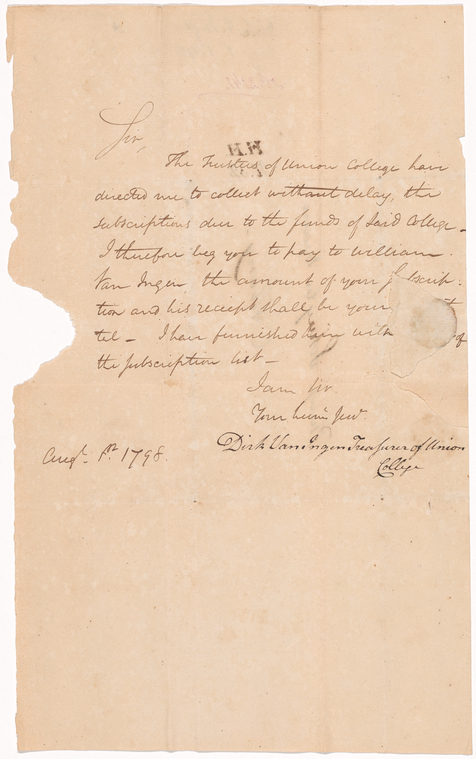 Sir,
H.H
The Trustees of Union College have
directed me to collect without delay, the
subscriptions due to the funds of Said College –
I therefore beg you to pay to William
Van Ingen the amount of your Subscrip-
tion and his receipt shall be your
tel – I have furnished him with of
the subscription list –
I am Sir
Your hum. Serv.
Dirk Van Ingen Treasurer of Union
College
Augt. 1st. 1798.